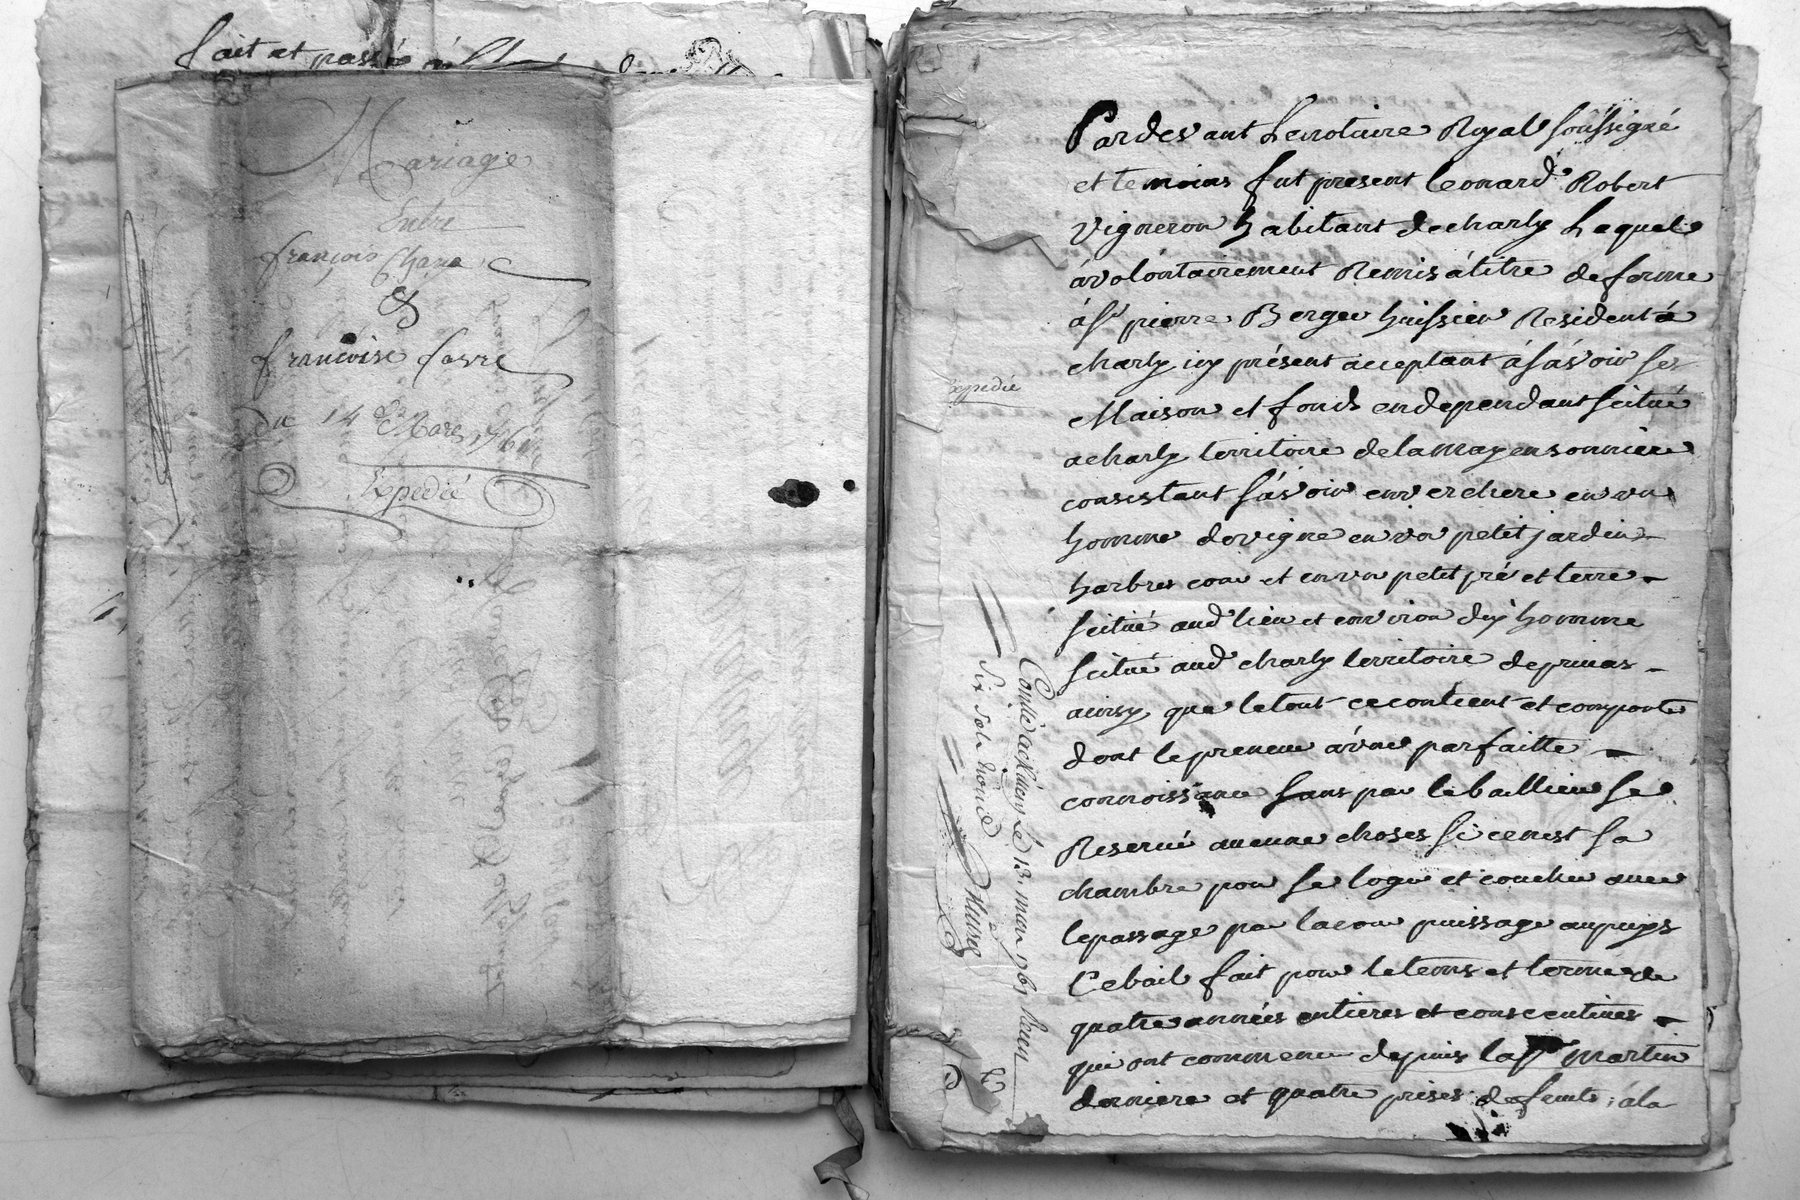 fait et passé
Mariage
Entre
françois Chana
&
françoise favre
du 14 Mars 1761
Expedié
Pardevant Lenotaire Royal soussigné
et temoins fut present leonard Robert
vigneron habitant de charly Lequel
à volontairement Remis à titre deferme
à sr pierre Berger huissier Resident à
charly icy présent acceptant à sàvoir ses
Maison et fonds endependant scitué
acharly territoire delamayensonniere
consistant sàvoir en verchere en un
homme devigne en un petit jardin
harbres cour et en un petit pré et terre
scitué aud lieu et environ dix homme
scitué aud charly territoire deprinas
ainsy que letout cecontient et comporte
dont lepreneur à une parfaitte
connoissance sans par lebaillieur se
Reservé aucune choses si cenest sa
chambre pour se loger et coucher avec
lepassage par lacour puissage aupuys
Cebail fait pour letems et terme de
quatre années entieres et consecutives
qui ont commencé depuis la st martin
derniere et quatre prises defruits à la
Expedié
Contlé à 13 mars 1761 Reçu
six sols